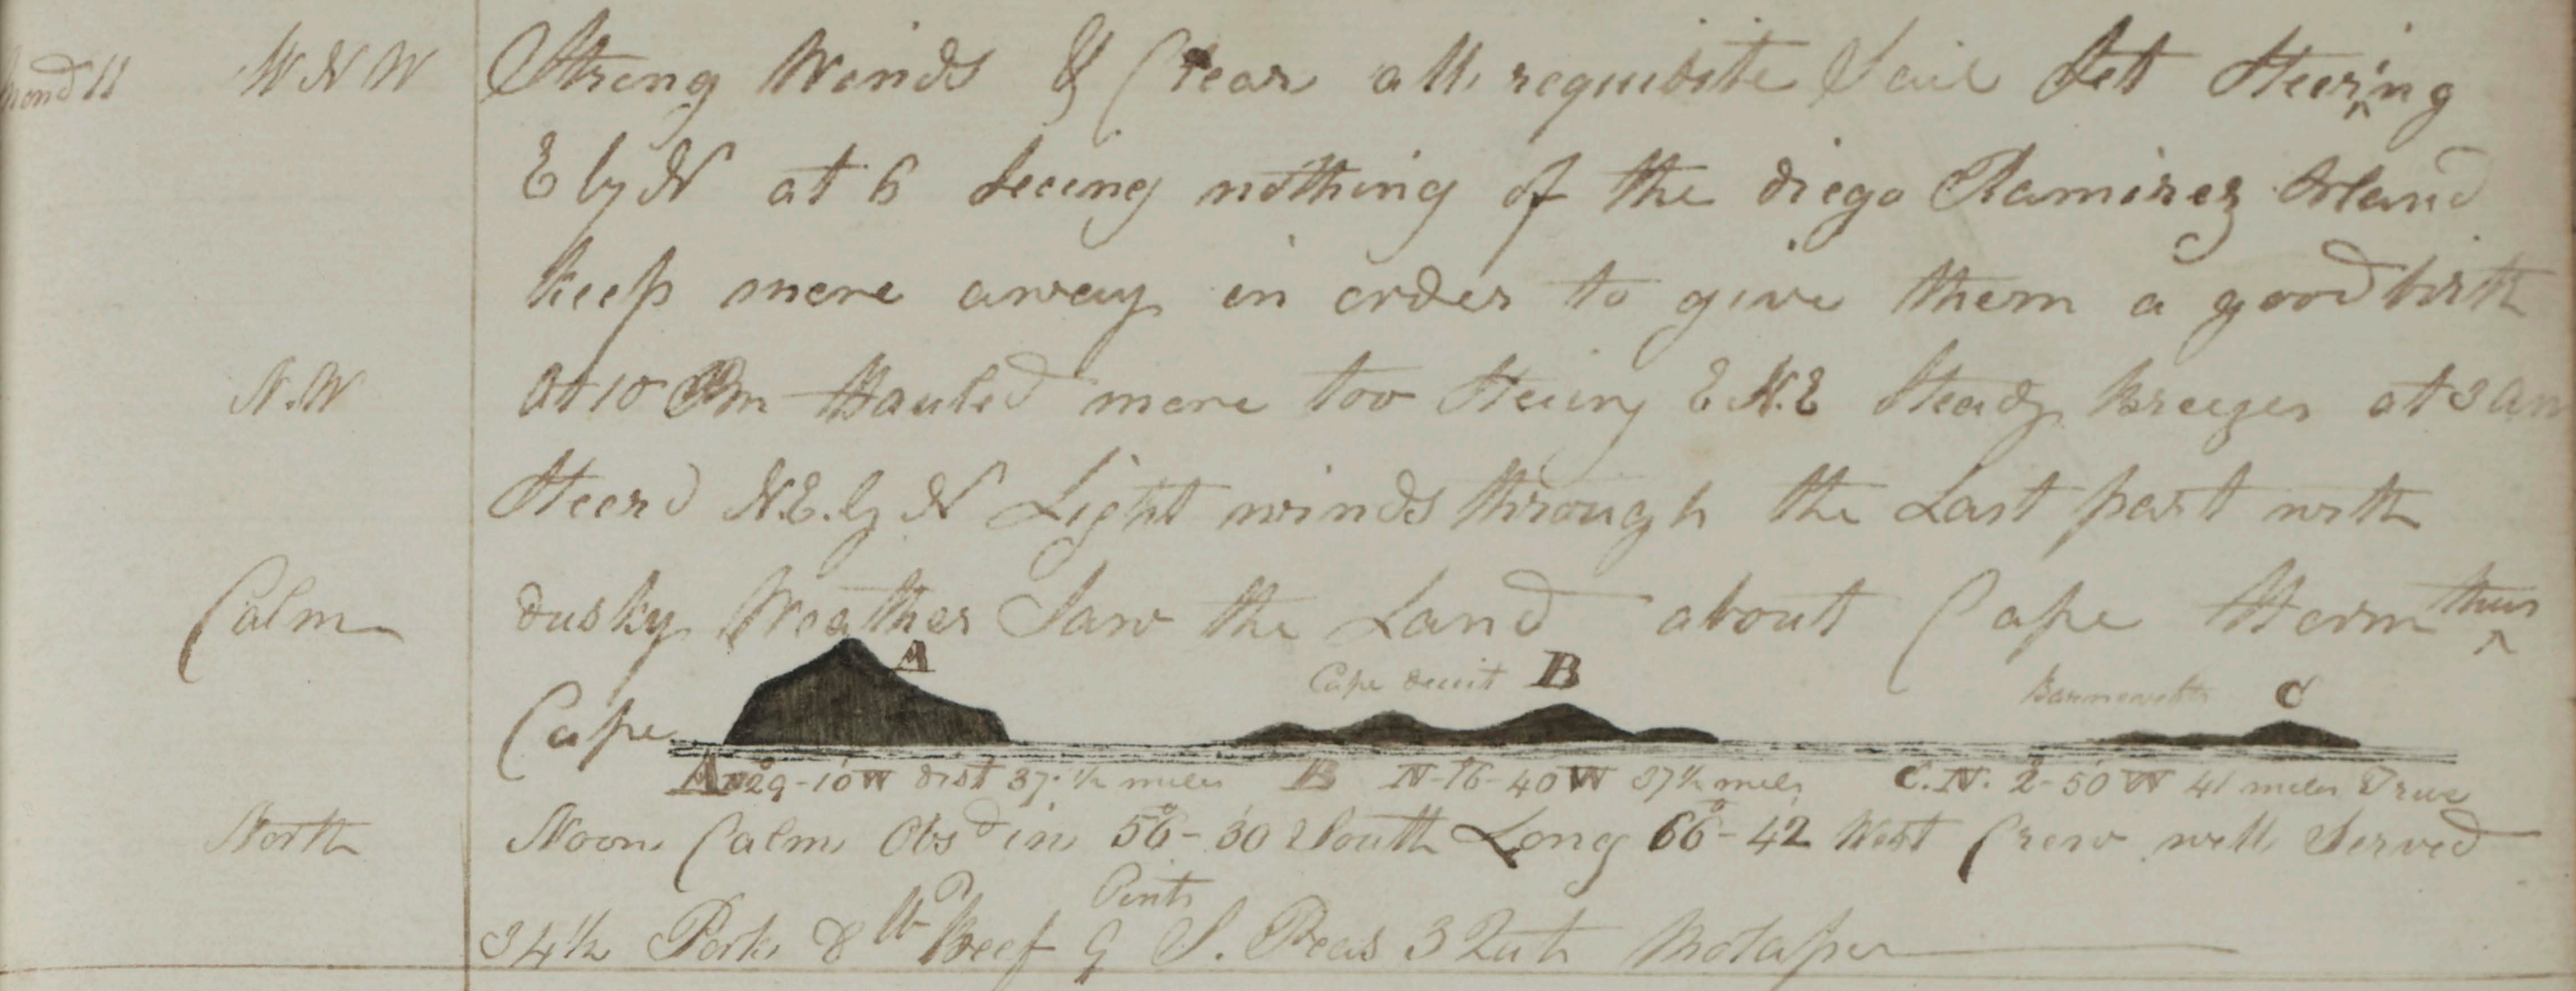 Mond 11 W N W Strong Winds & Clear all requisite Sail Set Steering
E by N at 6 Seeing nothing of the diego Ramirez Island
keep more away in order to give them a good birth
N.W At 10 Pm Hauled more too Steering E N.E Steady Breezes at 3 am
Steerd N.E. by N Light winds through the Last part with
Calm dusky Weather Saw the Land about Cape Horn thus
A Cape deceit B Barnevelts C
Cape
A N 29-10 W dist 37 ½ miles B N-16-40 W 37 ½ miles C. N. 2-50 W 41 miles True
North Noon Calm Obsd in 56-30 South Long 66-42 West Crew well Served
Pints
34 ½ Pork 8 lb Beef 9 S. Peas 3 Quts Molases